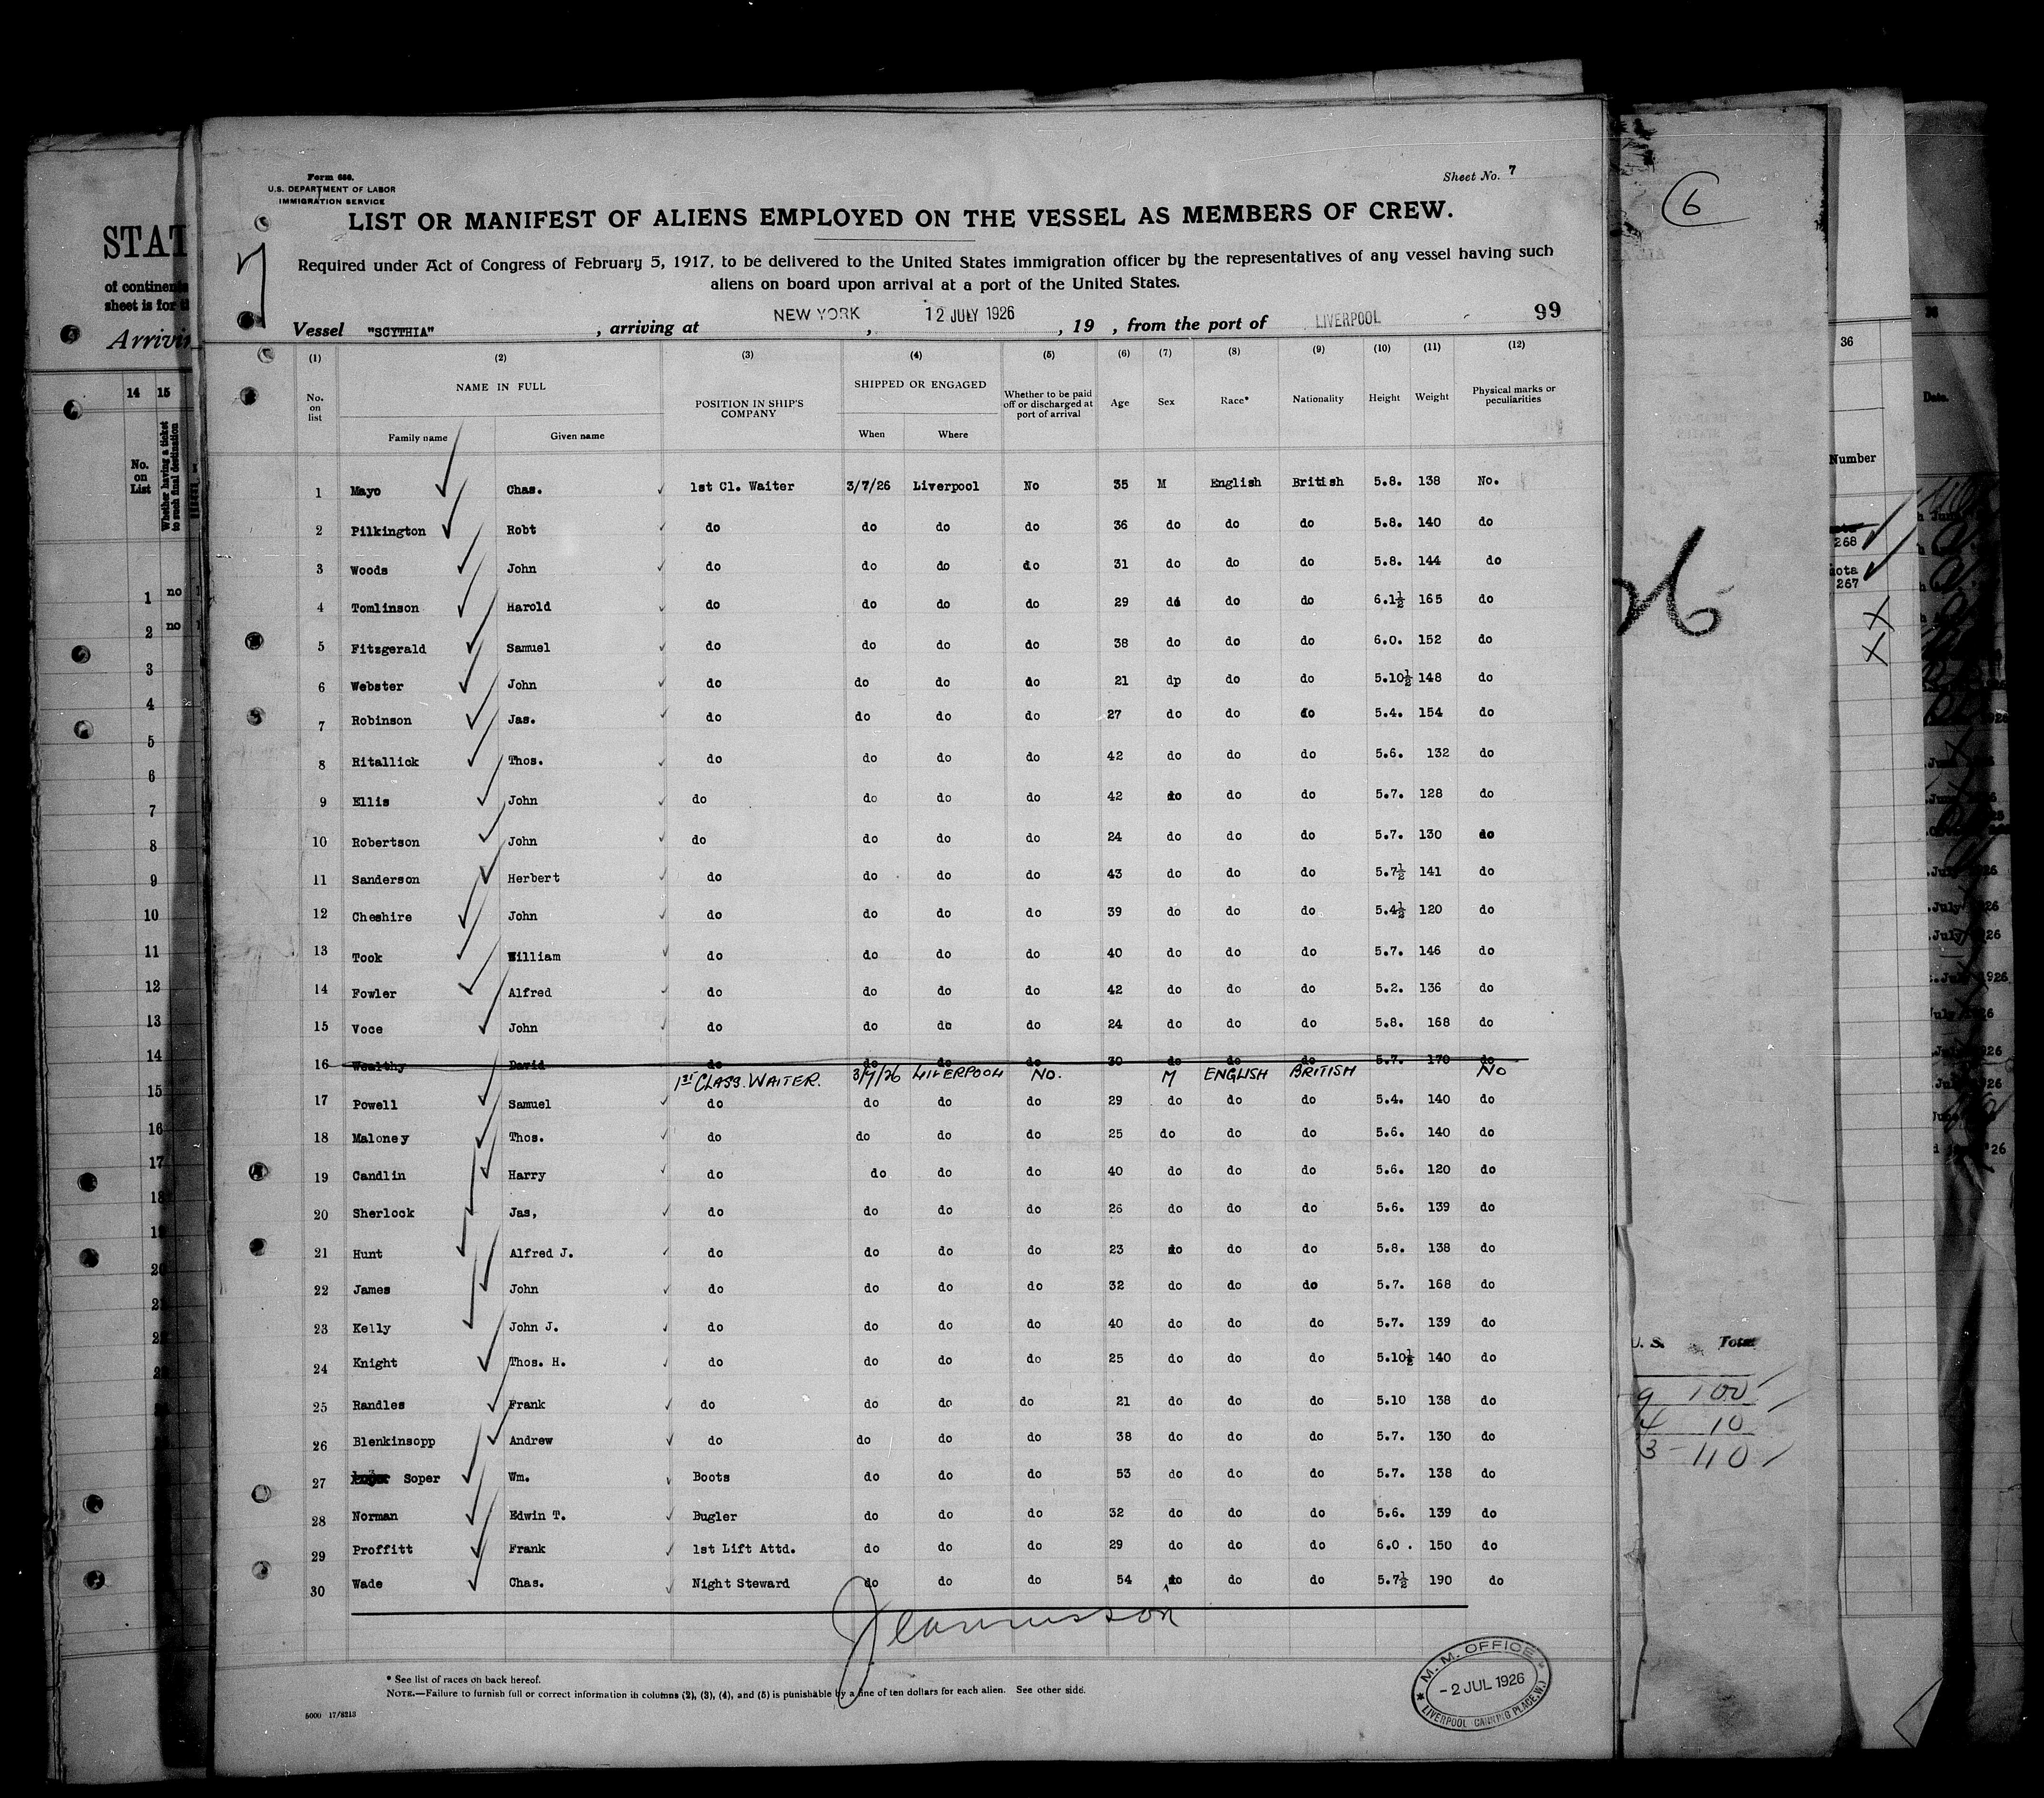 Form 686.
U.S. DEPARTMENT OF LABOR
IMMIGRATION SERVICE
Sheet No. 7
LIST OR MANIFEST OF ALIENS EMPLOYED ON THE VESSEL AS MEMBERS OF CREW.
7
Required under Act of Congress of February 5, 1917, to be delivered to the United States immigration officer by the representatives of any vessel having such
aliens on board upon arrival at a port of the United States.
99
Vessel "SCYTHIA", arriving at NEW YORK, 12 JULY 1926, 19 , from the port of LIVERPOOL
(1) (2) (3) (4) (5) (6) (7) (8) (9) (10) (11) (12)
No. on list NAME IN FULL POSITION IN SHIP'S COMPANY SHIPPED OR ENGAGED Whether to be paid off or discharged at port of arrival Age Sex Race* Nationality Height Weight Physical marks or peculiarities
Family name Given name When Where
1 Mayo Chas. 1st Cl. Waiter 3/7/26 Liverpool No 35 M English British 5.8. 138 No.
2 Pilkington Robt do do do do 36 do do do 5.8. 140 do
3 Woods John do do do do 31 do do do 5.8. 144 do
4 Tomlinson Harold do do do do 29 do do do 6.1½ 165 do
5 Fitzgerald Samuel do do do do 38 do do do 6.0. 152 do
6 Webster John do do do do 21 dp do do 5.10½ 148 do
7 Robinson Jas. do do do do 27 do do do 5.4. 154 do
8 Ritallick Thos. do do do do 42 do do do 5.6. 132 do
9 Ellis John do do do do 42 do do do 5.7. 128 do
10 Robertson John do do do do 24 do do do 5.7. 130 do
11 Sanderson Herbert do do do do 43 do do do 5.7½ 141 do
12 Cheshire John do do do do 39 do do do 5.4½ 120 do
13 Took William do do do do 40 do do do 5.7. 146 do
14 Fowler Alfred do do do do 42 do do do 5.2. 136 do
15 Voce John do do do do 24 do do do 5.8. 168 do
16 Wealthy David do do do do 30 do do do 5.7. 170 do
1ST CLASS. WAITER. 3/7/26 LIVERPOOL NO. M ENGLISH BRITISH NO
17 Powell Samuel do do do do 29 do do do 5.4. 140 do
18 Maloney Thos. do do do do 25 do do do 5.6. 140 do
19 Candlin Harry do do do do 40 do do do 5.6. 120 do
20 Sherlock Jas, do do do do 26 do do do 5.6. 139 do
21 Hunt Alfred J. do do do do 23 do do do 5.8. 138 do
22 James John do do do do 32 do do do 5.7. 168 do
23 Kelly John J. do do do do 40 do do do 5.7. 139 do
24 Knight Thos. H. do do do do 25 do do do 5.10½ 140 do
25 Randles Frank do do do do 21 do do do 5.10 138 do
26 Blenkinsopp Andrew do do do do 38 do do do 5.7. 130 do
27 Soper Wm. Boots do do do 53 do do do 5.7. 138 do
28 Norman Edwin T. Bugler do do do 32 do do do 5.6. 139 do
29 Proffitt Frank 1st Lift Attd. do do do 29 do do do 6.0 . 150 do
30 Wade Chas. Night Steward do do do 54 do do do 5.7½ 190 do
* See list of races on back hereof.
NOTE.—Failure to furnish full or correct information in columns (2), (3), (4), and (5) is punishable by a fine of ten dollars for each alien. See other side.
5000 17/8213
M. M. OFFICE
- 2 JUL 1926
LIVERPOOL CANNING PLACE.W.1
STAT
of continen
sheet is for
Arrivi
14 15
No. on List
Whether having a ticket to such final destination
1 no
2 no
3
4
5
6
7
8
9
10
11
12
13
14
15
16
17
18
19
20
6
26
U. S. Total
9 100
4 10
3 - 110
36
Number
268
267
Date.